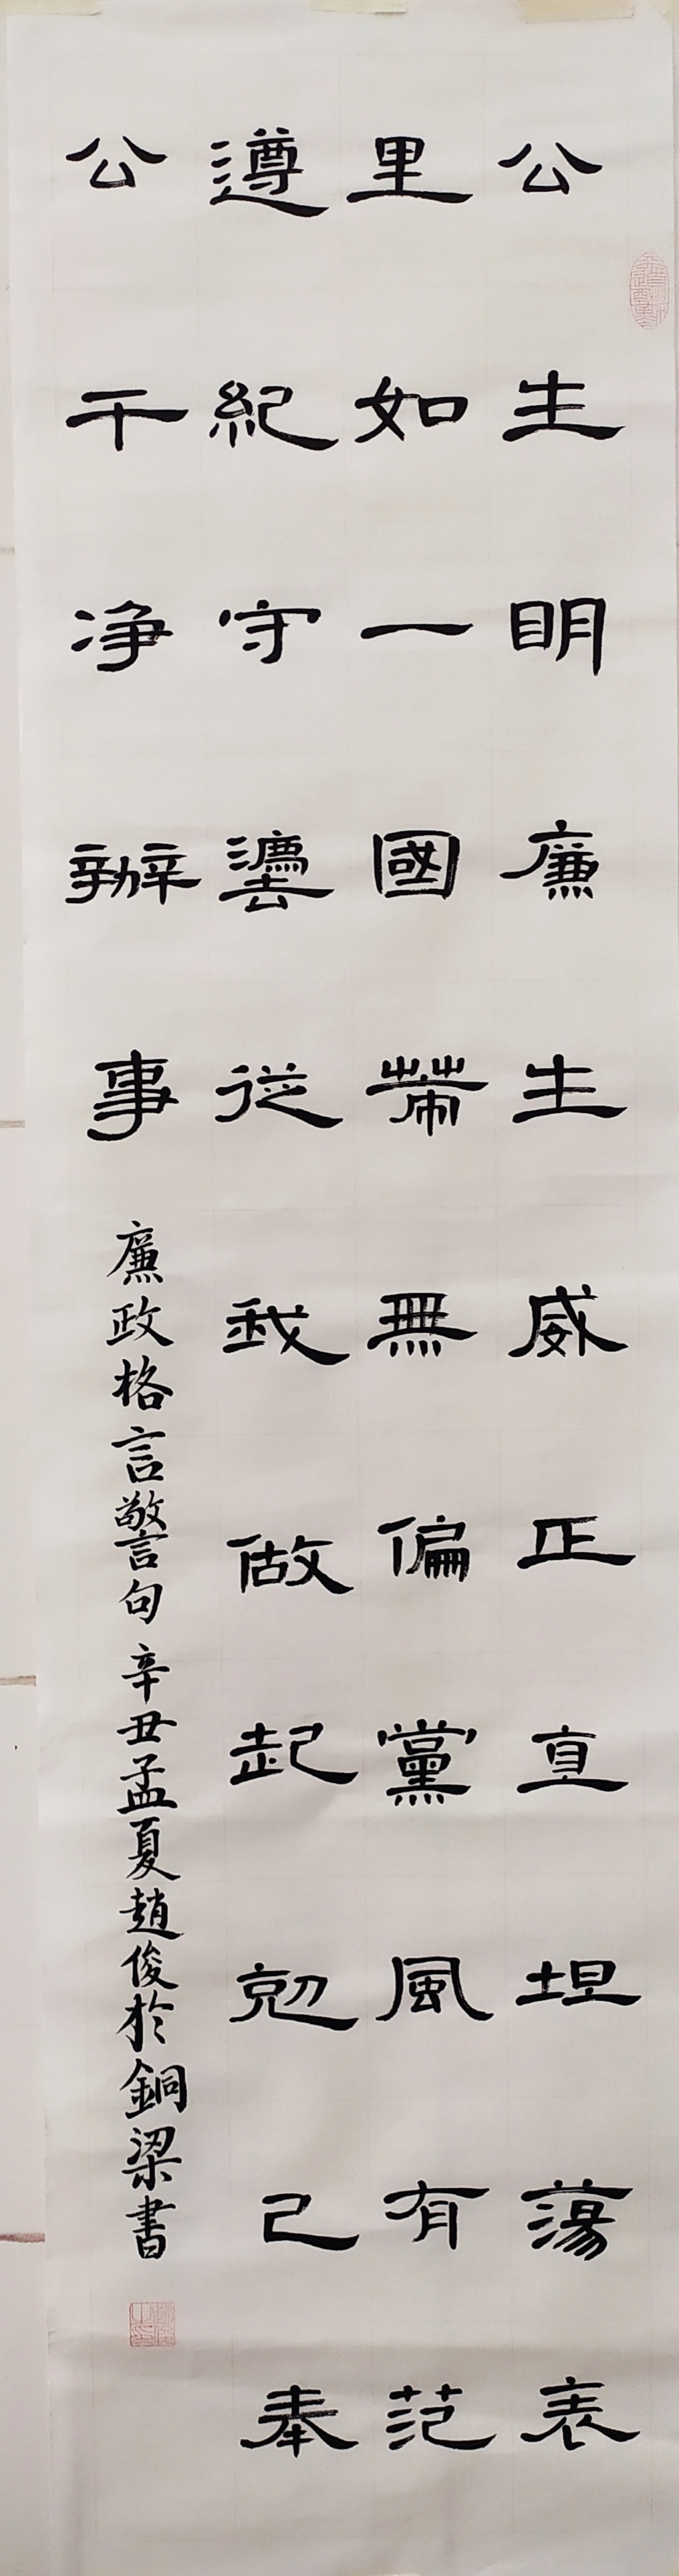 公生明廉生威正直坦蕩表
里如一國帶無偏黨風有范
遵紀守灋從我做起克己奉
公干净辦事
廉政格言警句辛丑孟夏趙俊於銅梁書